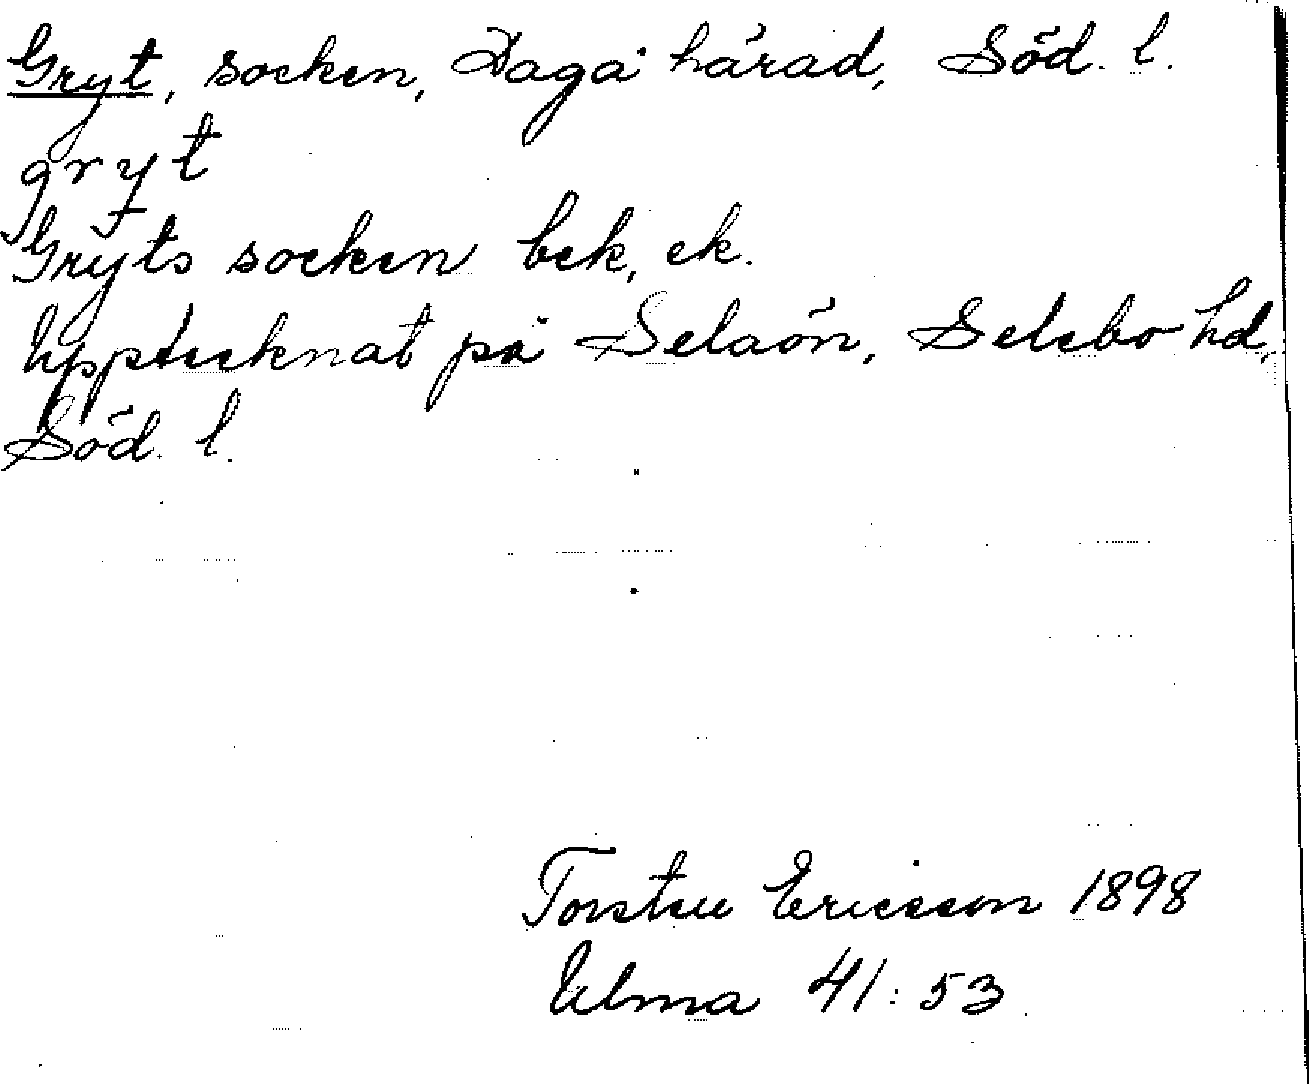 Gryt, socken, Daga härad, Söd. l.
gryt
Gryts socken bek, ek.
Upptecknat på Selaön, Selebo hd,
Söd. l.
Torsten Ericsson 1898
Ulma 41:53